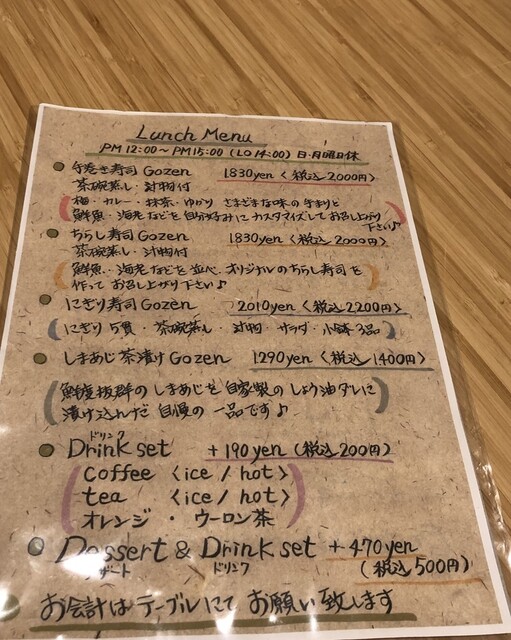 Lunch Menu
PM 12:00～PM 15:00 (LO 14:00) 日・月曜日休
手巻き寿司 Gozen 1830yen〈税込2000円〉
茶碗蒸し・汁物付
梅・カレー・抹茶・ゆかり さまざまな味の手まりと
鮮魚・海老などを自分好みにカスタマイズしてお召し上がり
下さい♪
ちらし寿司 Gozen 1830yen〈税込2000円〉
茶碗蒸し・汁物付
鮮魚・海老などを並べ、オリジナルのちらし寿司を
作ってお召し上がり下さい♪
にぎり寿司 Gozen 2010yen〈税込2200円〉
にぎり5貫・茶碗蒸し・汁物・サラダ・小鉢3品
しまあじ茶漬け Gozen 1290yen〈税込1400円〉
鮮度抜群のしまあじを自家製のしょう油ダレに
漬け込んだ自慢の一品です♪
ドリンク
Drink set +190yen (税込200円)
coffee 〈ice / hot〉
tea 〈ice / hot〉
オレンジ・ウーロン茶
Dessert & Drink set +470yen
デザート ドリンク (税込500円)
お会計はテーブルにてお願い致します